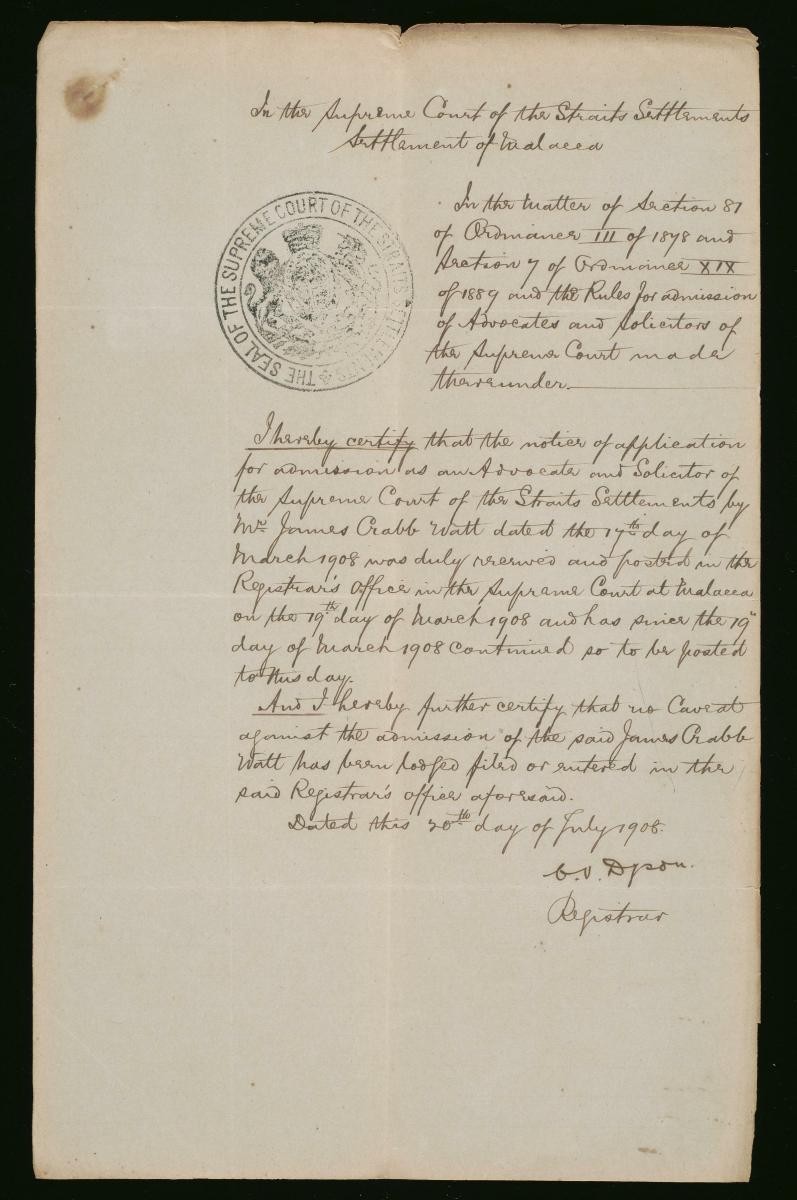 In the Supreme Court of the Straits Settlements
Settlement of Malacca
THE SEAL OF THE SUPREME COURT OF THE STRAITS SETTLEMENTS
In the Matter of Section 81
of Ordinance III of 1878 and
Section 7 of Ordinance XIX
of 1889 and the Rules for admission
of Advocates and Solicitors of
the Supreme Court made
thereunder.
I hereby certify that the notice of application
for admission as an Advocate and Solicitor of
the Supreme Court of the Straits Settlements by
Mr. James Crabb Watt dated the 17th day of
March 1908 was duly received and posted in the
Registrar's office in the Supreme Court at Malacca
on the 19th day of March 1908 and has since the 19th
day of March 1908 continued so to be posted
to this day.
And I hereby further certify that no Caveat
against the admission of the said James Crabb
Watt has been lodged filed or entered in the
said Registrar's office aforesaid.
Dated this 20th day of July 1908.
C. V. Dyson.
Registrar